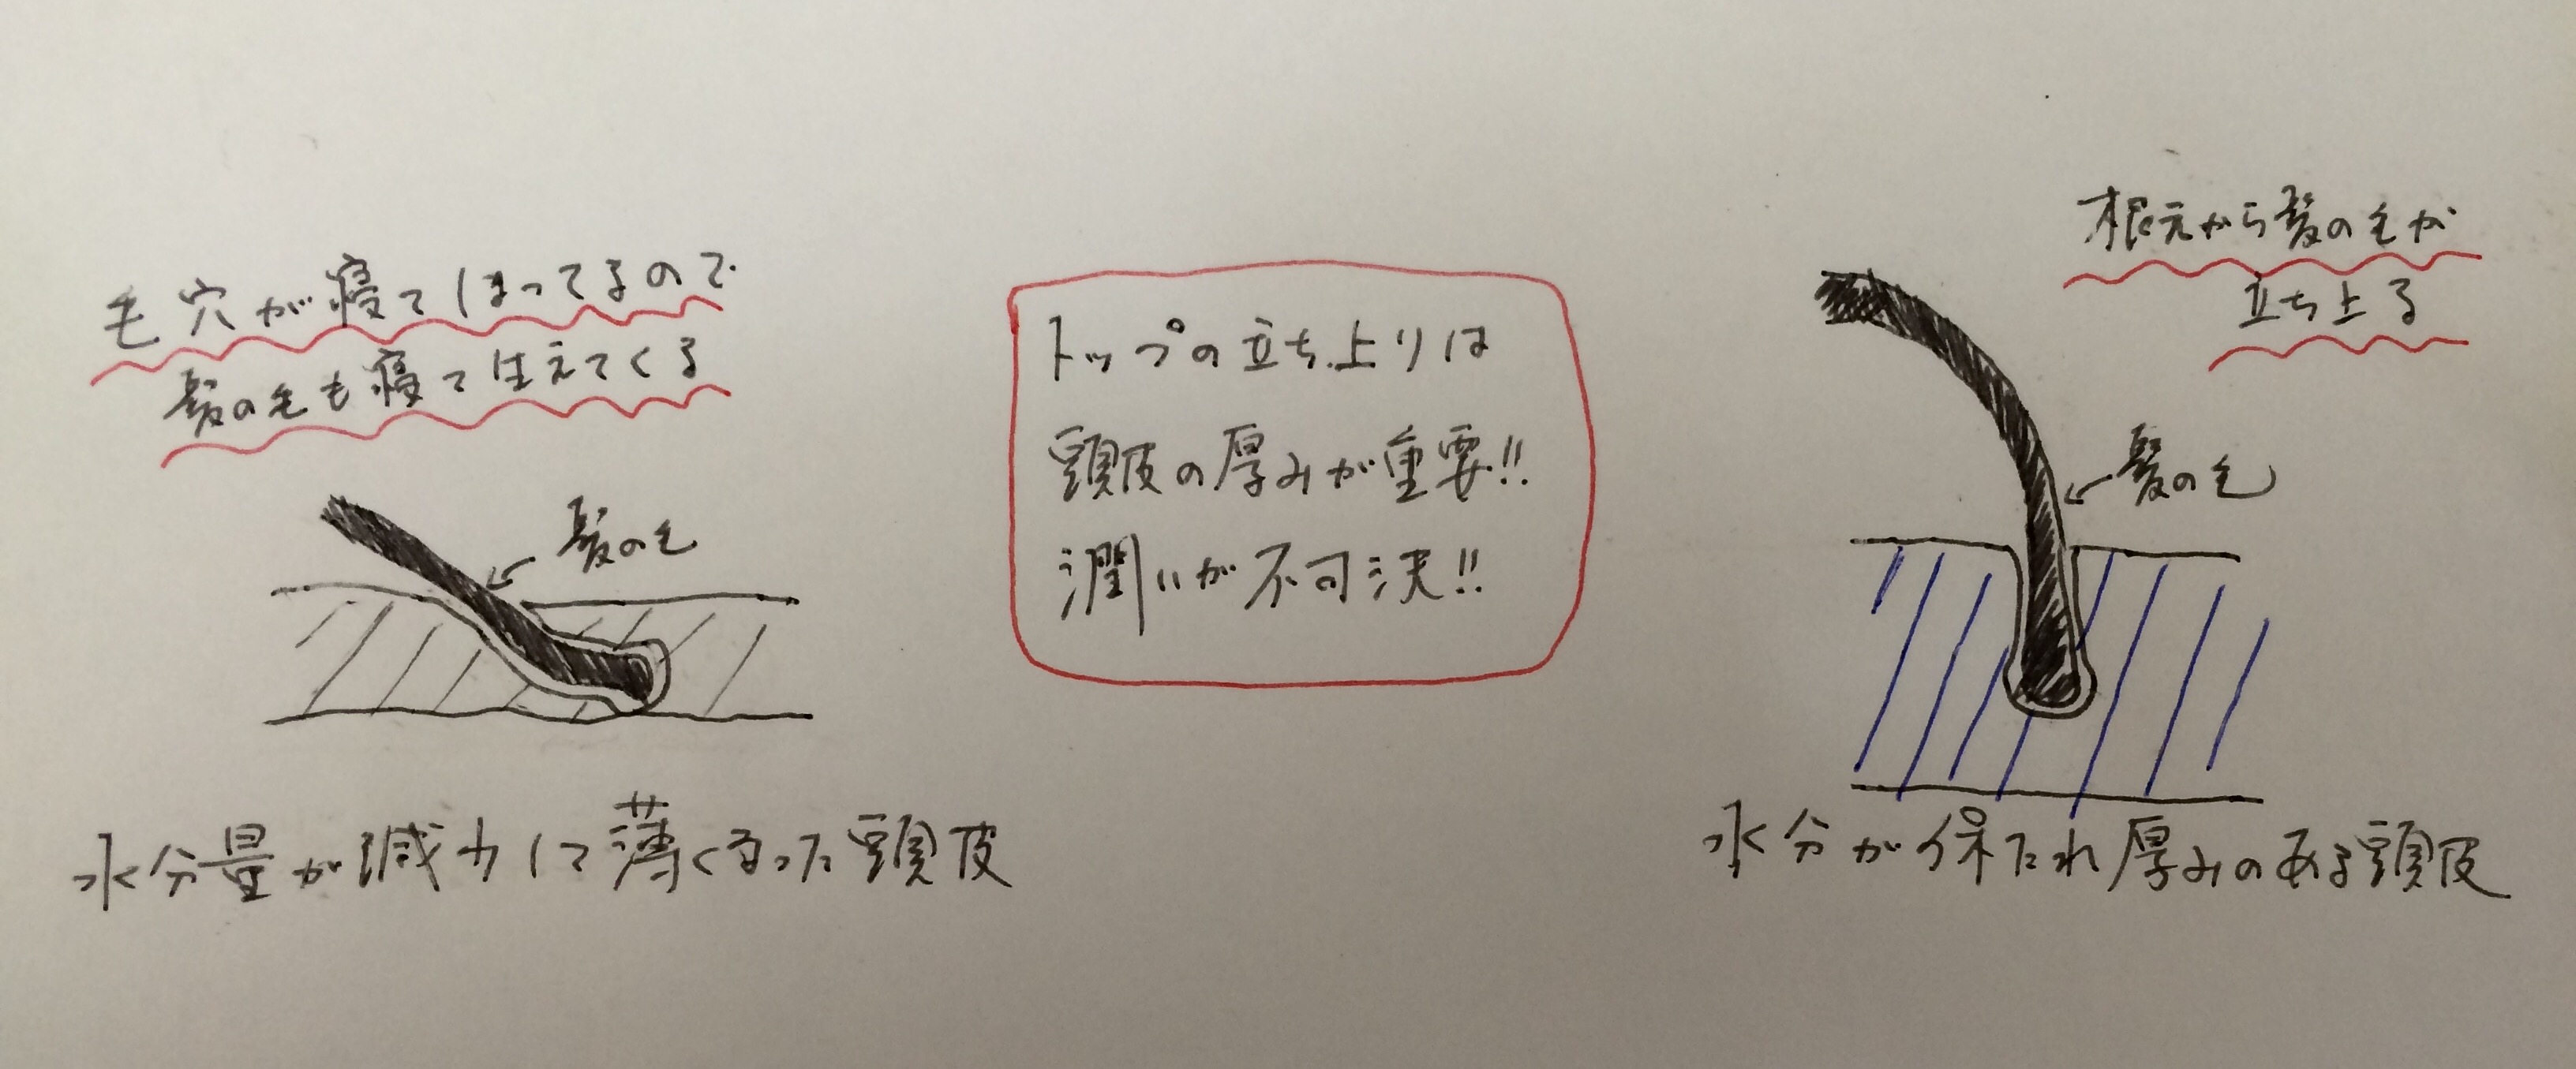 毛穴が寝てしまってるので
髪の毛も寝て生えてくる
髪の毛
水分量が減少して薄くなった頭皮
トップの立ち上りは
頭皮の厚みが重要!!
潤いが不可決!!
根元から髪の毛が
立ち上る
髪の毛
水分が保たれ厚みのある頭皮